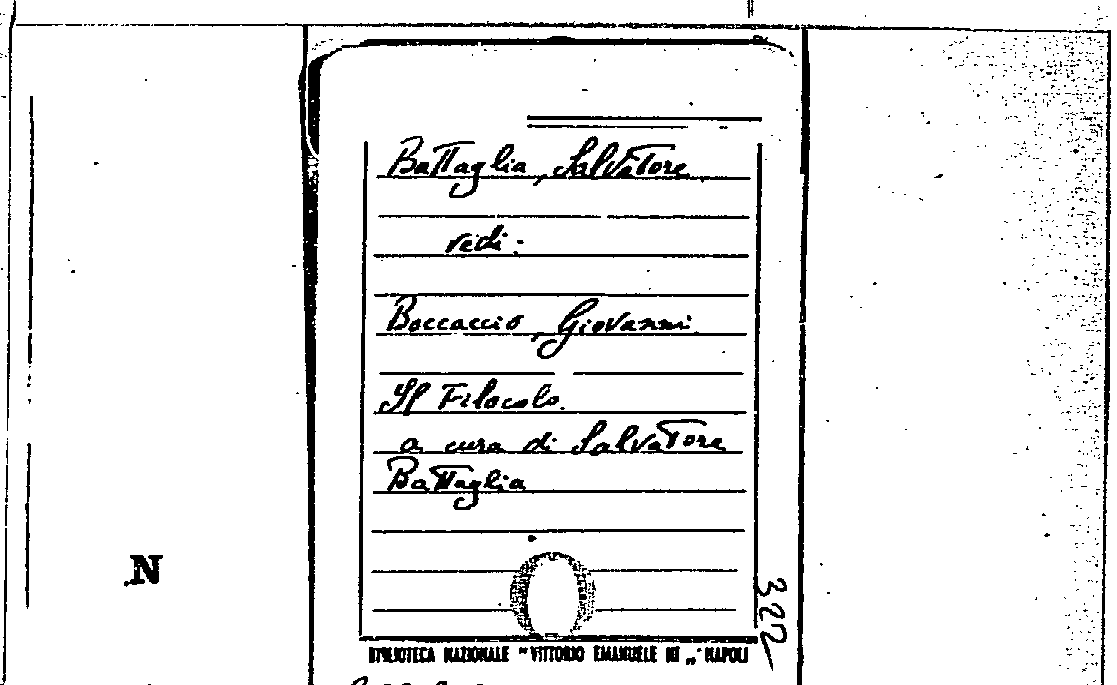 Battaglia, Salvatore
vedi:
Boccaccio, Giovanni.
Il Filocolo.
a cura di Salvatore
Battaglia
N
322
BIBLIOTECA NAZIONALE "VITTORIO EMANUELE III„ NAPOLI